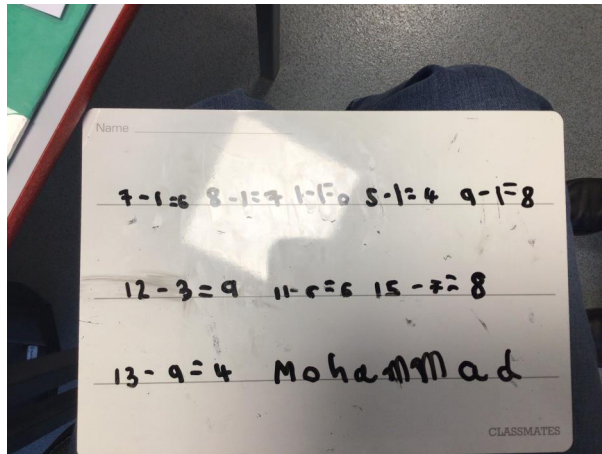 Name
7-1=6 8-1=7 1-1=0 5-1=4 9-1=8
12-3=9 11-5=6 15-7=8
13-9=4 Mohammad
CLASSMATES